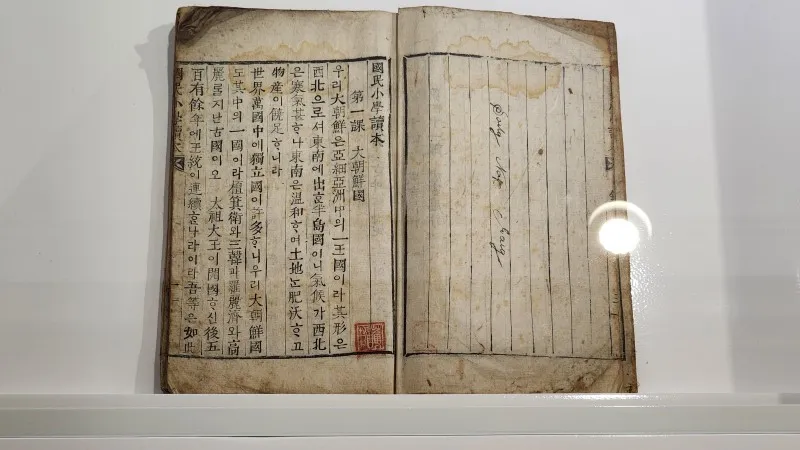 國民小學讀本
第一課 大朝鮮國
우리大朝鮮은亞細亞洲中의一王國이라其形은
西北으로셔東南에出ᄒᆞᆫ半島國이니氣候가西北
은寒氣甚ᄒᆞ나東南은溫和ᄒᆞ며土地ᄂᆞᆫ肥沃ᄒᆞ고
物産이饒足ᄒᆞ니라
世界萬國中에獨立國이許多ᄒᆞ니우리大朝鮮國
도其中의一國이라檀箕衛와三韓과羅麗濟와高
麗를지난古國이오 太祖大王이開國ᄒᆞ신後五
百有餘年에王統이連續ᄒᆞᆫ나라이라吾等은如此
國民小學讀本